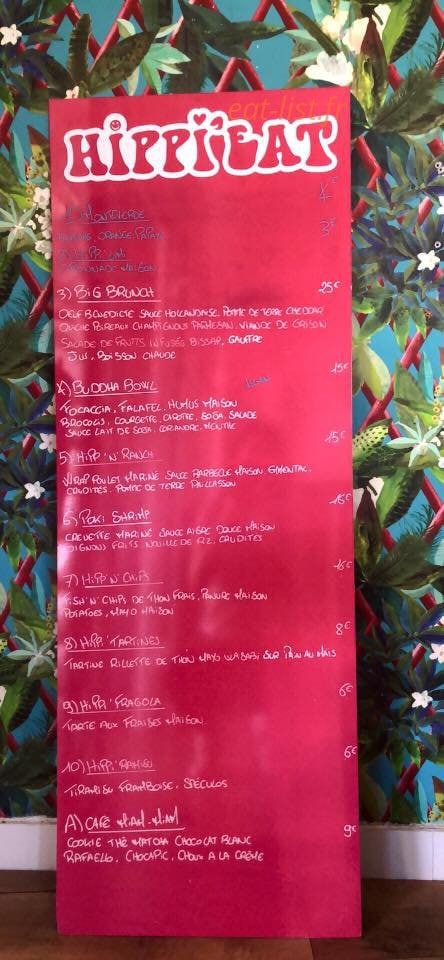 eat-list.fr
HIPPI'EAT
4€
1) MONTEVERDE
3€
ORANGE,
MAISON
3) BIG BRUNCH 25€
OEUF BÉNÉDICTE SAUCE HOLLANDAISE, POMME DE TERRE CHEDDAR
QUICHE POIREAUX CHAMPIGNONS PARMESAN, VIANDE DE GRISON
SALADE DE FRUITS INFUSÉS BISSAP, GAUFRE
JUS, BOISSON CHAUDE
15€
4) BUDDHA BOWL VEGAN
FOCACCIA, FALAFEL, HUMUS MAISON
BROCOLIS, COURGETTE, CAROTTE, SOJA, SALADE
SAUCE LAIT DE SOJA, CORIANDRE, MENTHE
15€
5) HIPP 'N' RANCH
WRAP POULET MARINÉ SAUCE BARBECUE MAISON EMMENTAL,
CRUDITÉS, POMME DE TERRE PAILLASSON
15€
6) POKI SHRIMP
CREVETTE MARINÉ SAUCE AIGRE DOUCE MAISON
OIGNONS FRITS NOUILLE DE RIZ, CRUDITÉS
15€
7) HIPP N' CHIPS
FISH 'N' CHIPS DE THON FRAIS, PANURE MAISON
POTATOES, MAYO MAISON
8€
8) HIPPI TARTINES
TARTINE RILLETTE DE THON MAYO WASABI SUR PAIN AU MAÏS
6€
9) HIPPI' FRAGOLA
TARTE AUX FRAISES MAISON
6€
10) HIPPI'RAMISU
TIRAMISU FRAMBOISE, SPÉCULOS
A) CAFÉ MIAM-MIAM 9€
COOKIE THÉ MATCHA CHOCOLAT BLANC
RAFAELLO, CHOCAPIC, CHOUX A LA CRÈME